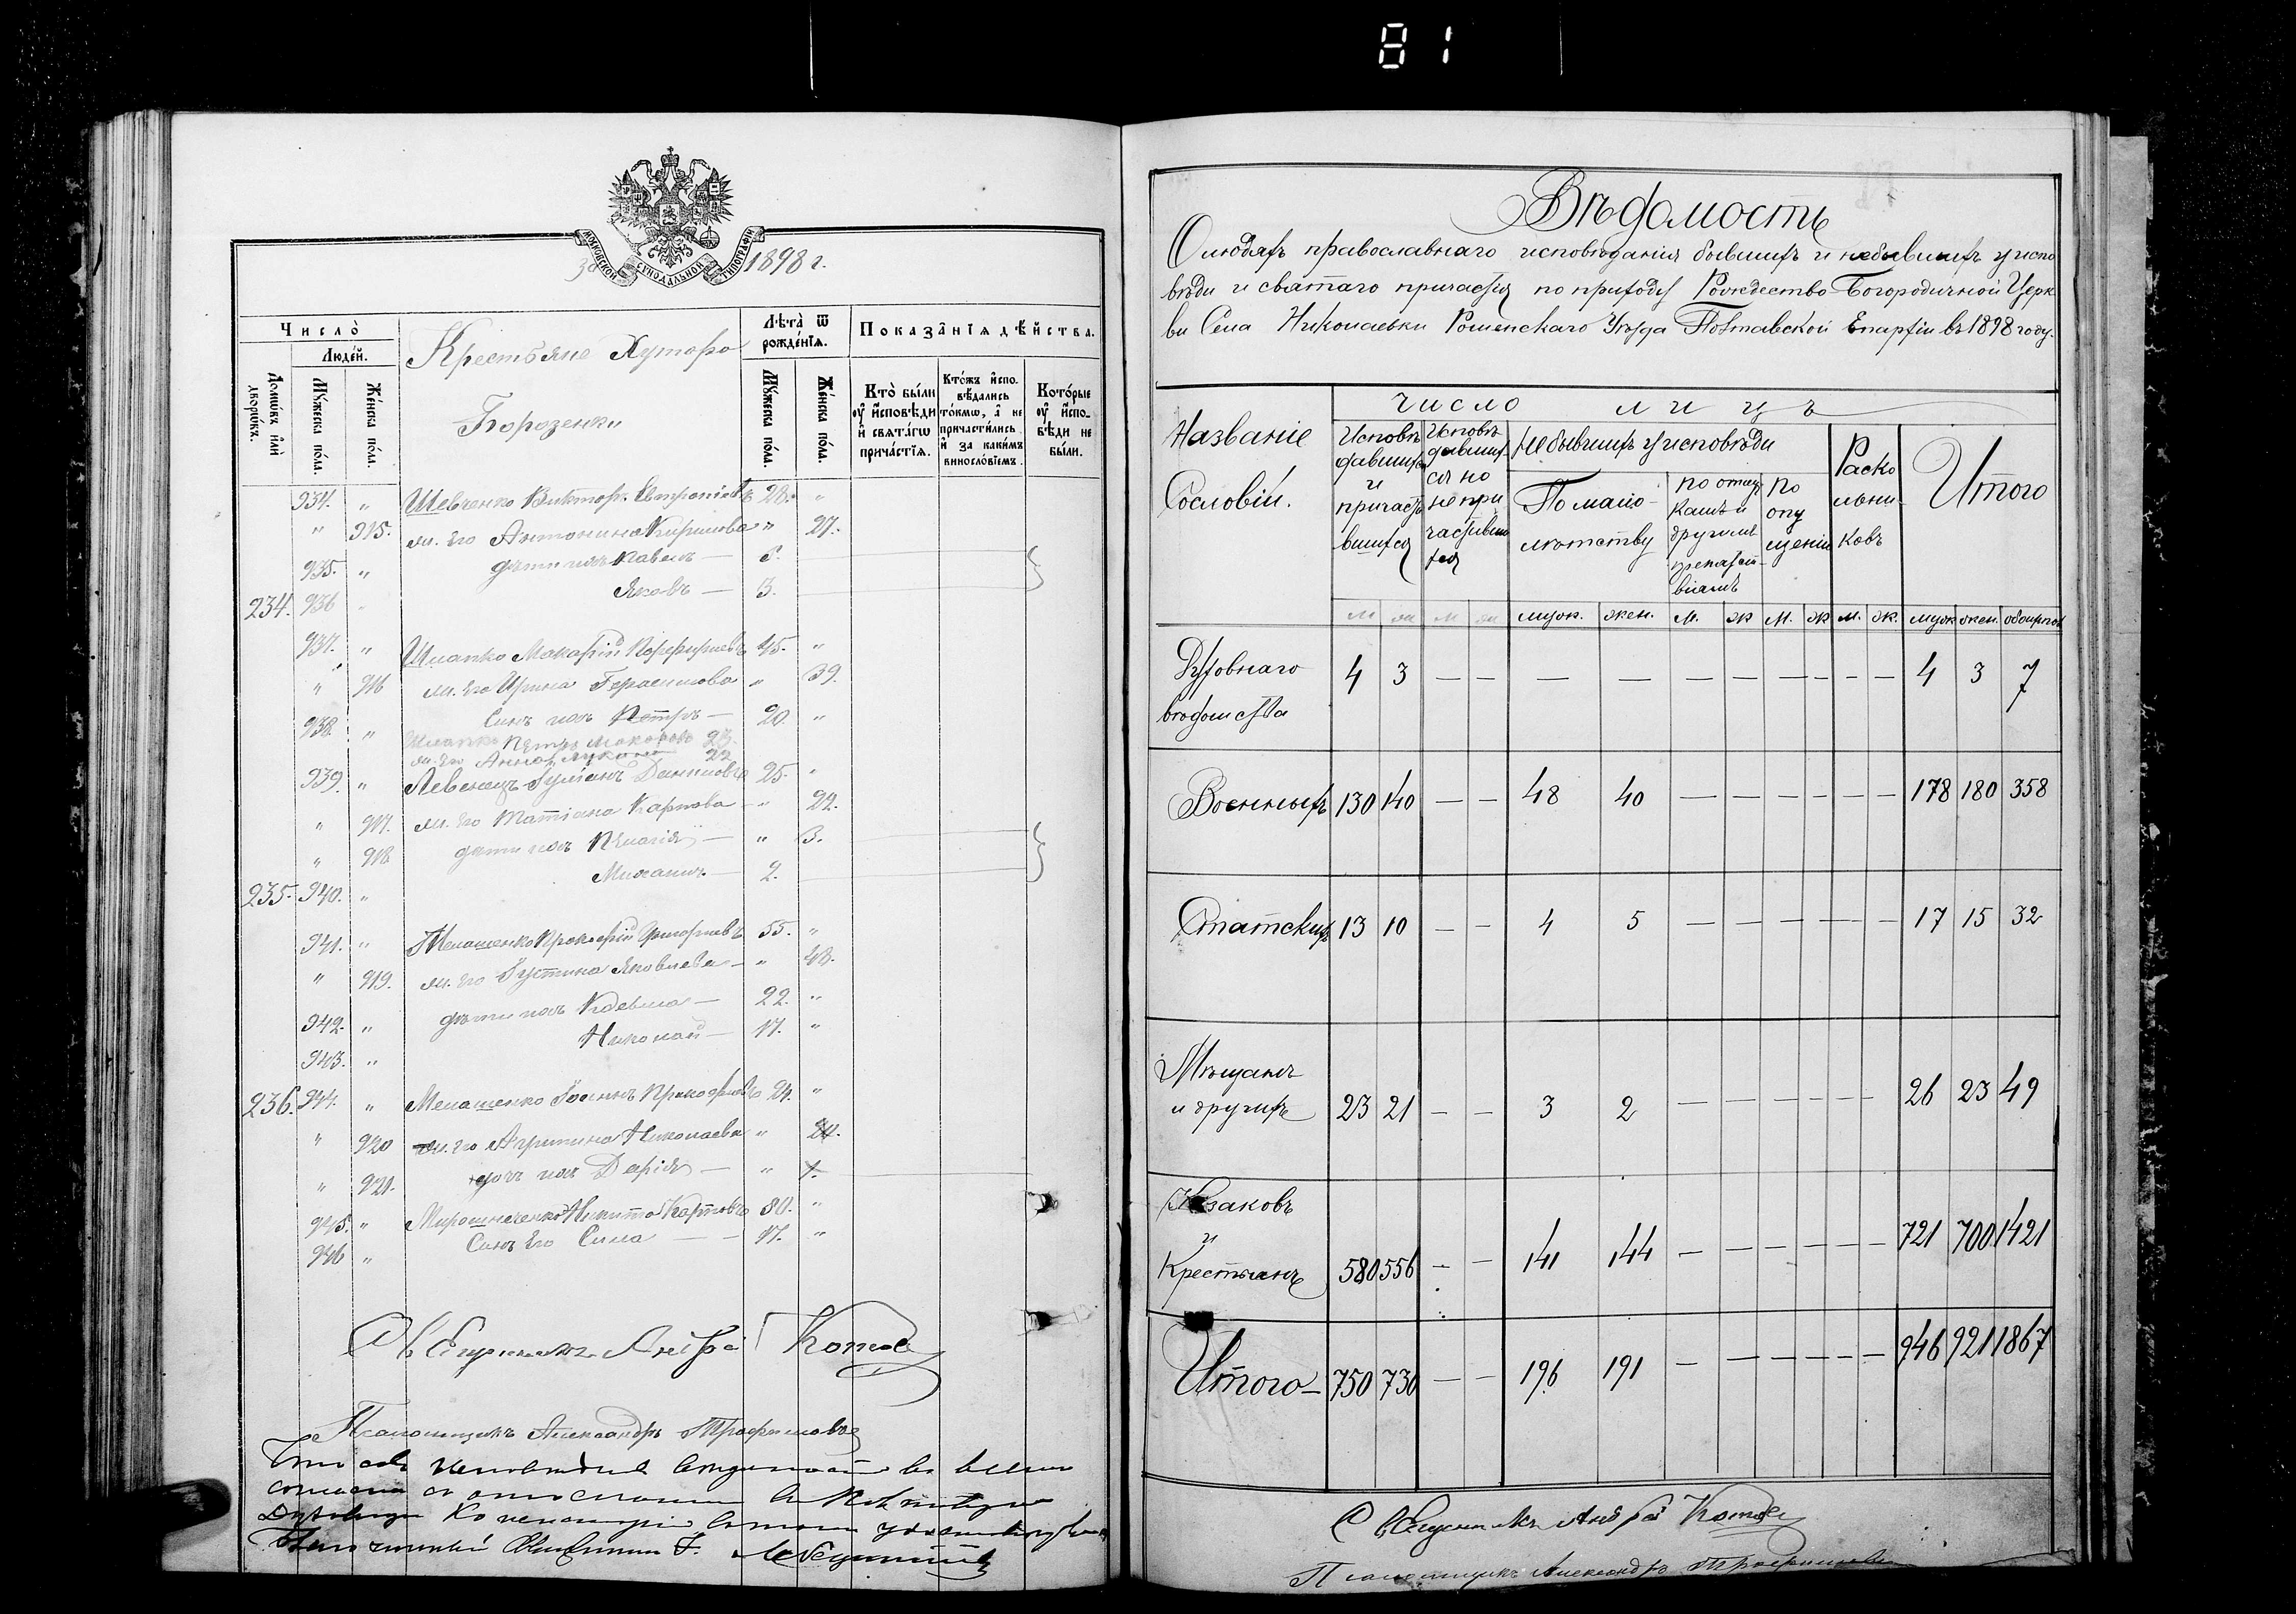 81
МОСКОВСКОЙ СѴНОДАЛЬНОЙ ТИПОГРАФІИ
За 1898 г.
Число̀
Люде́й.
Домѡ́въ и҆лѝ дворѡ́въ.
Мꙋ́жеска по́ла.
Же́нска по́ла.
Крестьяне Хутора
Лѣта̀ ѿ рожде́нїѧ.
Мꙋ́жеска по́ла.
Же́нска по́ла.
Показа̑нїѧ дѣ́йства.
Кто̀ бы́ли оу҆ и҆сповѣ́ди и҆ свѧта́гѡ прича́стїѧ.
Кто́жъ и҆споⸯвѣ́дались то́кмѡ, а҆ не причасти́лись и҆ за каки́мъ винословїемъ.
Кото́рые оу҆ и҆спо-вѣ́ди не бы́ли.
934. " Шевченко Викторъ 28. "
" 915. ж. его Антонина Кирилова " 27.
935. " дѣти ихъ Павелъ — 5.
234. 936 Яковъ — 3.
937. " Шлапко Макарій Порфирьевъ 45. "
" 916 ж. его Ирина Герасимова " 39.
938. " Сынъ ихъ Петръ — 20. "
Шлапко Петръ Макаровъ 23.
ж. его Анна 22
939. " Левенецъ Іуліанъ Даниловъ 25. "
" 917. ж. его Татіана Карпова " 22.
" 918 дѣти ихъ Пелагія — " 3.
Михаилъ — 2.
235. 940. "
941. " Мелашенко Прокофій Григорьевъ 55. "
" 919. ж. его Іустина Яковлева — " 48.
942. " дѣти ихъ — 22. "
943. " Николай — 17. "
236. 944. " Мелашенко Іоаннъ Прокофьевъ 24. "
" 920 ж. его Агрипина Николаева " 24.
" 921. дочь ихъ Дарія — " 1.
945. " Мирошниченко Никита Карповъ 80. "
946 " Сынъ Его Сила — — 17. "
Священникъ Андрей Котов
Псаломщикъ Александръ Трофимовъ
Вѣдомость
О людяхъ православнаго исповѣданія бывшихъ и небывшихъ у испо
вѣди и святаго причастія по приходу Рождество-Богородичной Церк
ви Села Николаевки Роменскаго Уѣзда Полтавской Епархіи въ 1898 году.
Названіе Сословій.
число лицъ
Исповѣдавшихся и причастившихся
Исповѣдавшихся но не причастившихся
Небывшихъ у исповѣди
По малолѣтству
по отлучкамъ и другимъ препятствіямъ
по опущенію
Раскольниковъ
Итого
м ж м ж муж. жен. м. ж м. ж м. ж. муж жен. обоихпол
Духовнаго вѣдомства 4 3 — — — — — — — — — — 4 3 7
Военныхъ 130 140 — — 48 40 — — — — — — 178 180 358
Статскихъ 13 10 — — 4 5 — — — — — — 17 15 32
Мѣщанъ и другихъ 23 21 — — 3 2 — — — — — — 26 23 49
Козаковъ и Крестьянъ 580 556 — — 141 144 — — — — — — 721 700 1421
Итого — 750 730 — — 196 191 — — — — — — 946 921 1867
Священникъ Андрей Котов
Псаломщикъ Александръ Трофимовъ